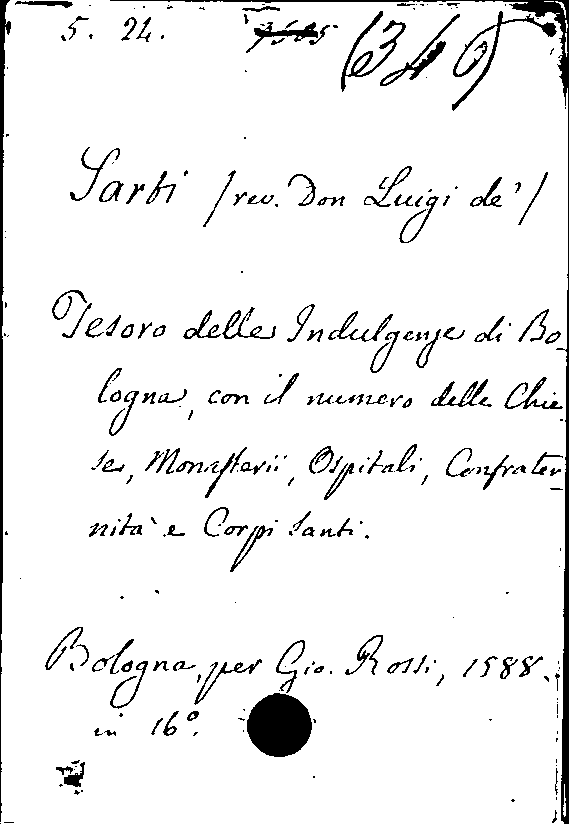 5. 24. (346)
Sarti /rev. Don Luigi de'/
Tesoro delle Indulgenze di Bo_
logna, con il numero delle Chie_
se, Monasterii, Ospitali, Confrater_
nità e Corpi santi.
Bologna, per Gio. Rossi, 1588.
in 16º.